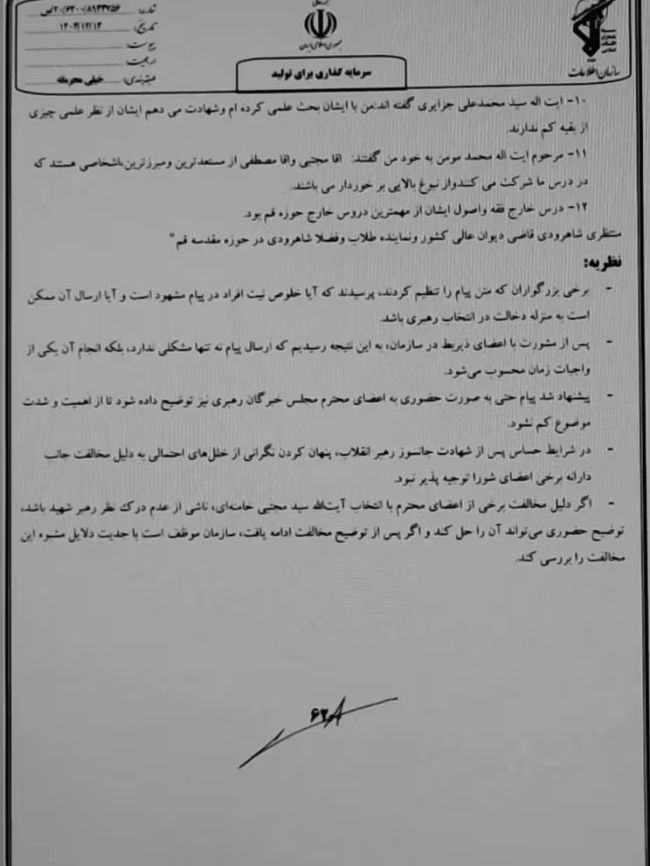 شماره: ۲۰/۶۲۰۰/۸۹۳۳۷۵۶/ص
تاریخ: ۱۴۰۴/۱۲/۱۴
پیوست:
ارجحیت:
طبقه‌بندی: خیلی محرمانه
جمهوری اسلامی ایران
سرمایه گذاری برای تولید
سازمان اطلاعات
۱۰- ایت اله سید محمدعلی جزایری گفته اند:من با ایشان بحث علمی کرده ام وشهادت می دهم ایشان از نظر علمی چیزی
از بقیه کم ندارند.
۱۱- مرحوم ایت اله محمد مومن به خود من گفتند: اقا مجتبی واقا مصطفی از مستعدترین ومبرزترین،اشخاصی هستند که
در درس ما شرکت می کنندواز نبوغ بالایی بر خوردار می باشند.
۱۲- درس خارج فقه واصول ایشان از مهمترین دروس خارج حوزه قم بود.
منتظری شاهرودی قاضی دیوان عالی کشور ونماینده طلاب وفضلا شاهرودی در حوزه مقدسه قم"
نظریه:
- برخی بزرگواران که متن پیام را تنظیم کردند، پرسیدند که آیا خلوص نیت افراد در پیام مشهود است و آیا ارسال آن ممکن
است به منزله دخالت در انتخاب رهبری باشد.
- پس از مشورت با اعضای ذیربط در سازمان، به این نتیجه رسیدیم که ارسال پیام نه تنها مشکلی ندارد، بلکه انجام آن یکی از
واجبات زمان محسوب می‌شود.
- پیشنهاد شد پیام حتی به صورت حضوری به اعضای محترم مجلس خبرگان رهبری نیز توضیح داده شود تا از اهمیت و شدت
موضوع کم نشود.
- در شرایط حساس پس از شهادت جانسوز رهبر انقلاب، پنهان کردن نگرانی از خلل‌های احتمالی به دلیل مخالفت جانب
دارانه برخی اعضای شورا توجیه پذیر نبود.
- اگر دلیل مخالفت برخی از اعضای محترم با انتخاب آیت‌الله سید مجتبی خامنه‌ای، ناشی از عدم درک نظر رهبر شهید باشد،
توضیح حضوری می‌تواند آن را حل کند و اگر پس از توضیح مخالفت ادامه یافت، سازمان موظف است با جدیت دلایل مشبوه این
مخالفت را بررسی کند.